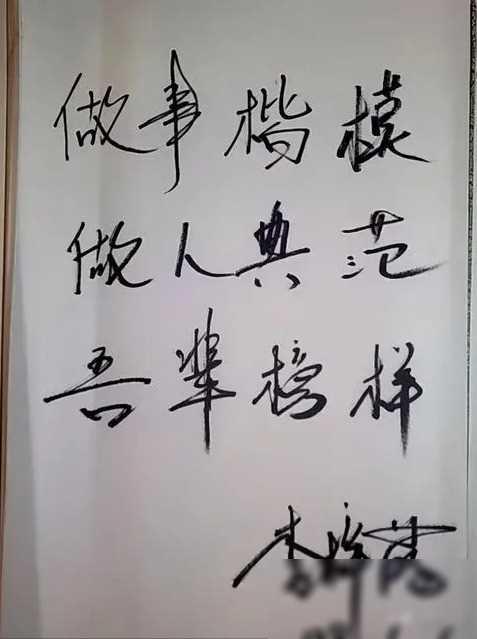 做事楷模
做人典范
吾辈榜样